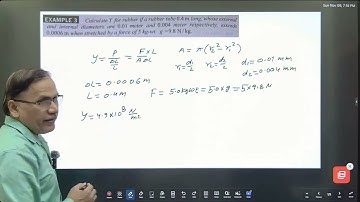 Sun Nov 9th, 7:16 PM
EXAMPLE 3 Calculate Y for rubber if a rubber tube 0.4 m long, whose external
and internal diameters are 0.01 meter and 0.004 meter respectively, extends
0.0006 m when stretched by a force of 5 kg-wt g = 9.8 N/kg.
y = P / (ΔL/L) = F×L / AΔL
A = π(r₂² - r₁²)
r₁ = d₁/2 r₂ = d₂/2 d₁ = 0.01 mm
d₂ = 0.004 mm
ΔL = 0.0006 m
L = 0.4m F = 5.0 kgwt = 5.0×g = 5×9.8 N
y = 4.9×10⁸ N/m²